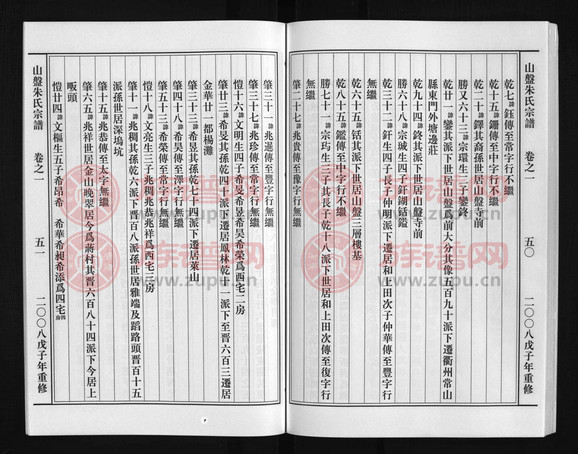 二〇〇八戊子年重修
五〇
山盤朱氏宗譜 卷之一
乾七 諱鈺傳至常字行不繼
乾十五 諱鏞傳至中字行不繼
乾二十 諱鐸其裔孫世居山盤寺前
勝又六十三 諱宗瓌生三子鑾鋒
乾廿一 諱鑾其派下世居山盤爲前大分其像五百九十派下遷衢州常山
縣東門外塘邊莊
乾九十四 諱鋒其派下世居山盤寺前
勝六十八 諱宗珹生四子釬鐧銛鑑
乾三十二 諱釬生四子長子仲明派下遷居和上田次子仲華傳至豐字行
無繼
乾六十五 諱銛其派下世居山盤三層樓基
乾八十五 諱鑑傳至中字行不繼
勝七十一 諱宗玓生三子其長子乾十八派下世居和上田次傳至復字行
無繼
肇二十七 諱兆貴傳至豫字行無繼
肇三十一 諱兆暹傳至豐字行無繼
肇十七 諱兆珍傳至常字行無繼
愷十六 諱文明生四子希旻希昱希昊希榮爲西宅二房
肇廿三 諱希旻其孫乾四十派下遷居鳳林乾廿一派下至晋六百三遷居
金華廿一都楊灘
肇三十三 諱希昱其孫乾七十四派下遷居萊山
肇四十八 諱希昊傳至澤字行無繼
肇五十三 諱希榮傳至常字行無繼
愷十八 諱文亮生三子兆稠兆恭兆祥爲西宅三房
肇十一 諱兆稠其孫乾六派下晋百八派孫世居雅端及蹈路頭晋百十五
派孫世居深塢坑
肇十五 諱兆恭傳至太字無繼
肇六五 諱兆祥世居金山晚翠居今爲蔣村其晋六百八十四派下今居上
呭頭
愷廿四 諱文樞生五子希昂希 希華希昶希添爲四宅
山盤朱氏宗譜 卷之一
五一
二〇〇八戊子年重修
族譜網
www.zupu.cn